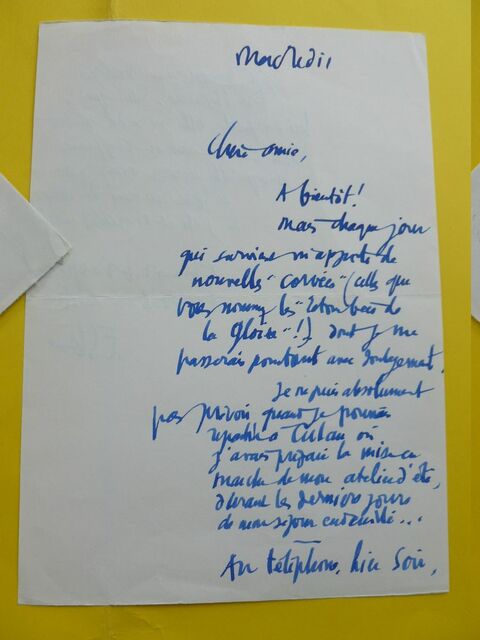 Mercredi
Chère amie,
A bientôt!
mais chaque jour
qui survient m'apporte de
nouvelles "corvées" (celles que
vous nommez les "retombées de
la Gloire"!) dont je me
passerais pourtant avec soulagement.
Je ne puis absolument
pas prévoir quand je pourrai
repartir à Culan où
j'avais préparé la mise en
marche de mon atelier d'été,
durant les derniers jours
de mon séjour
Au téléphone, hier soir,